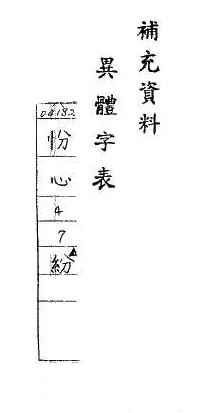 補充資料
異體字表
04182
忦
心
4
7
紛